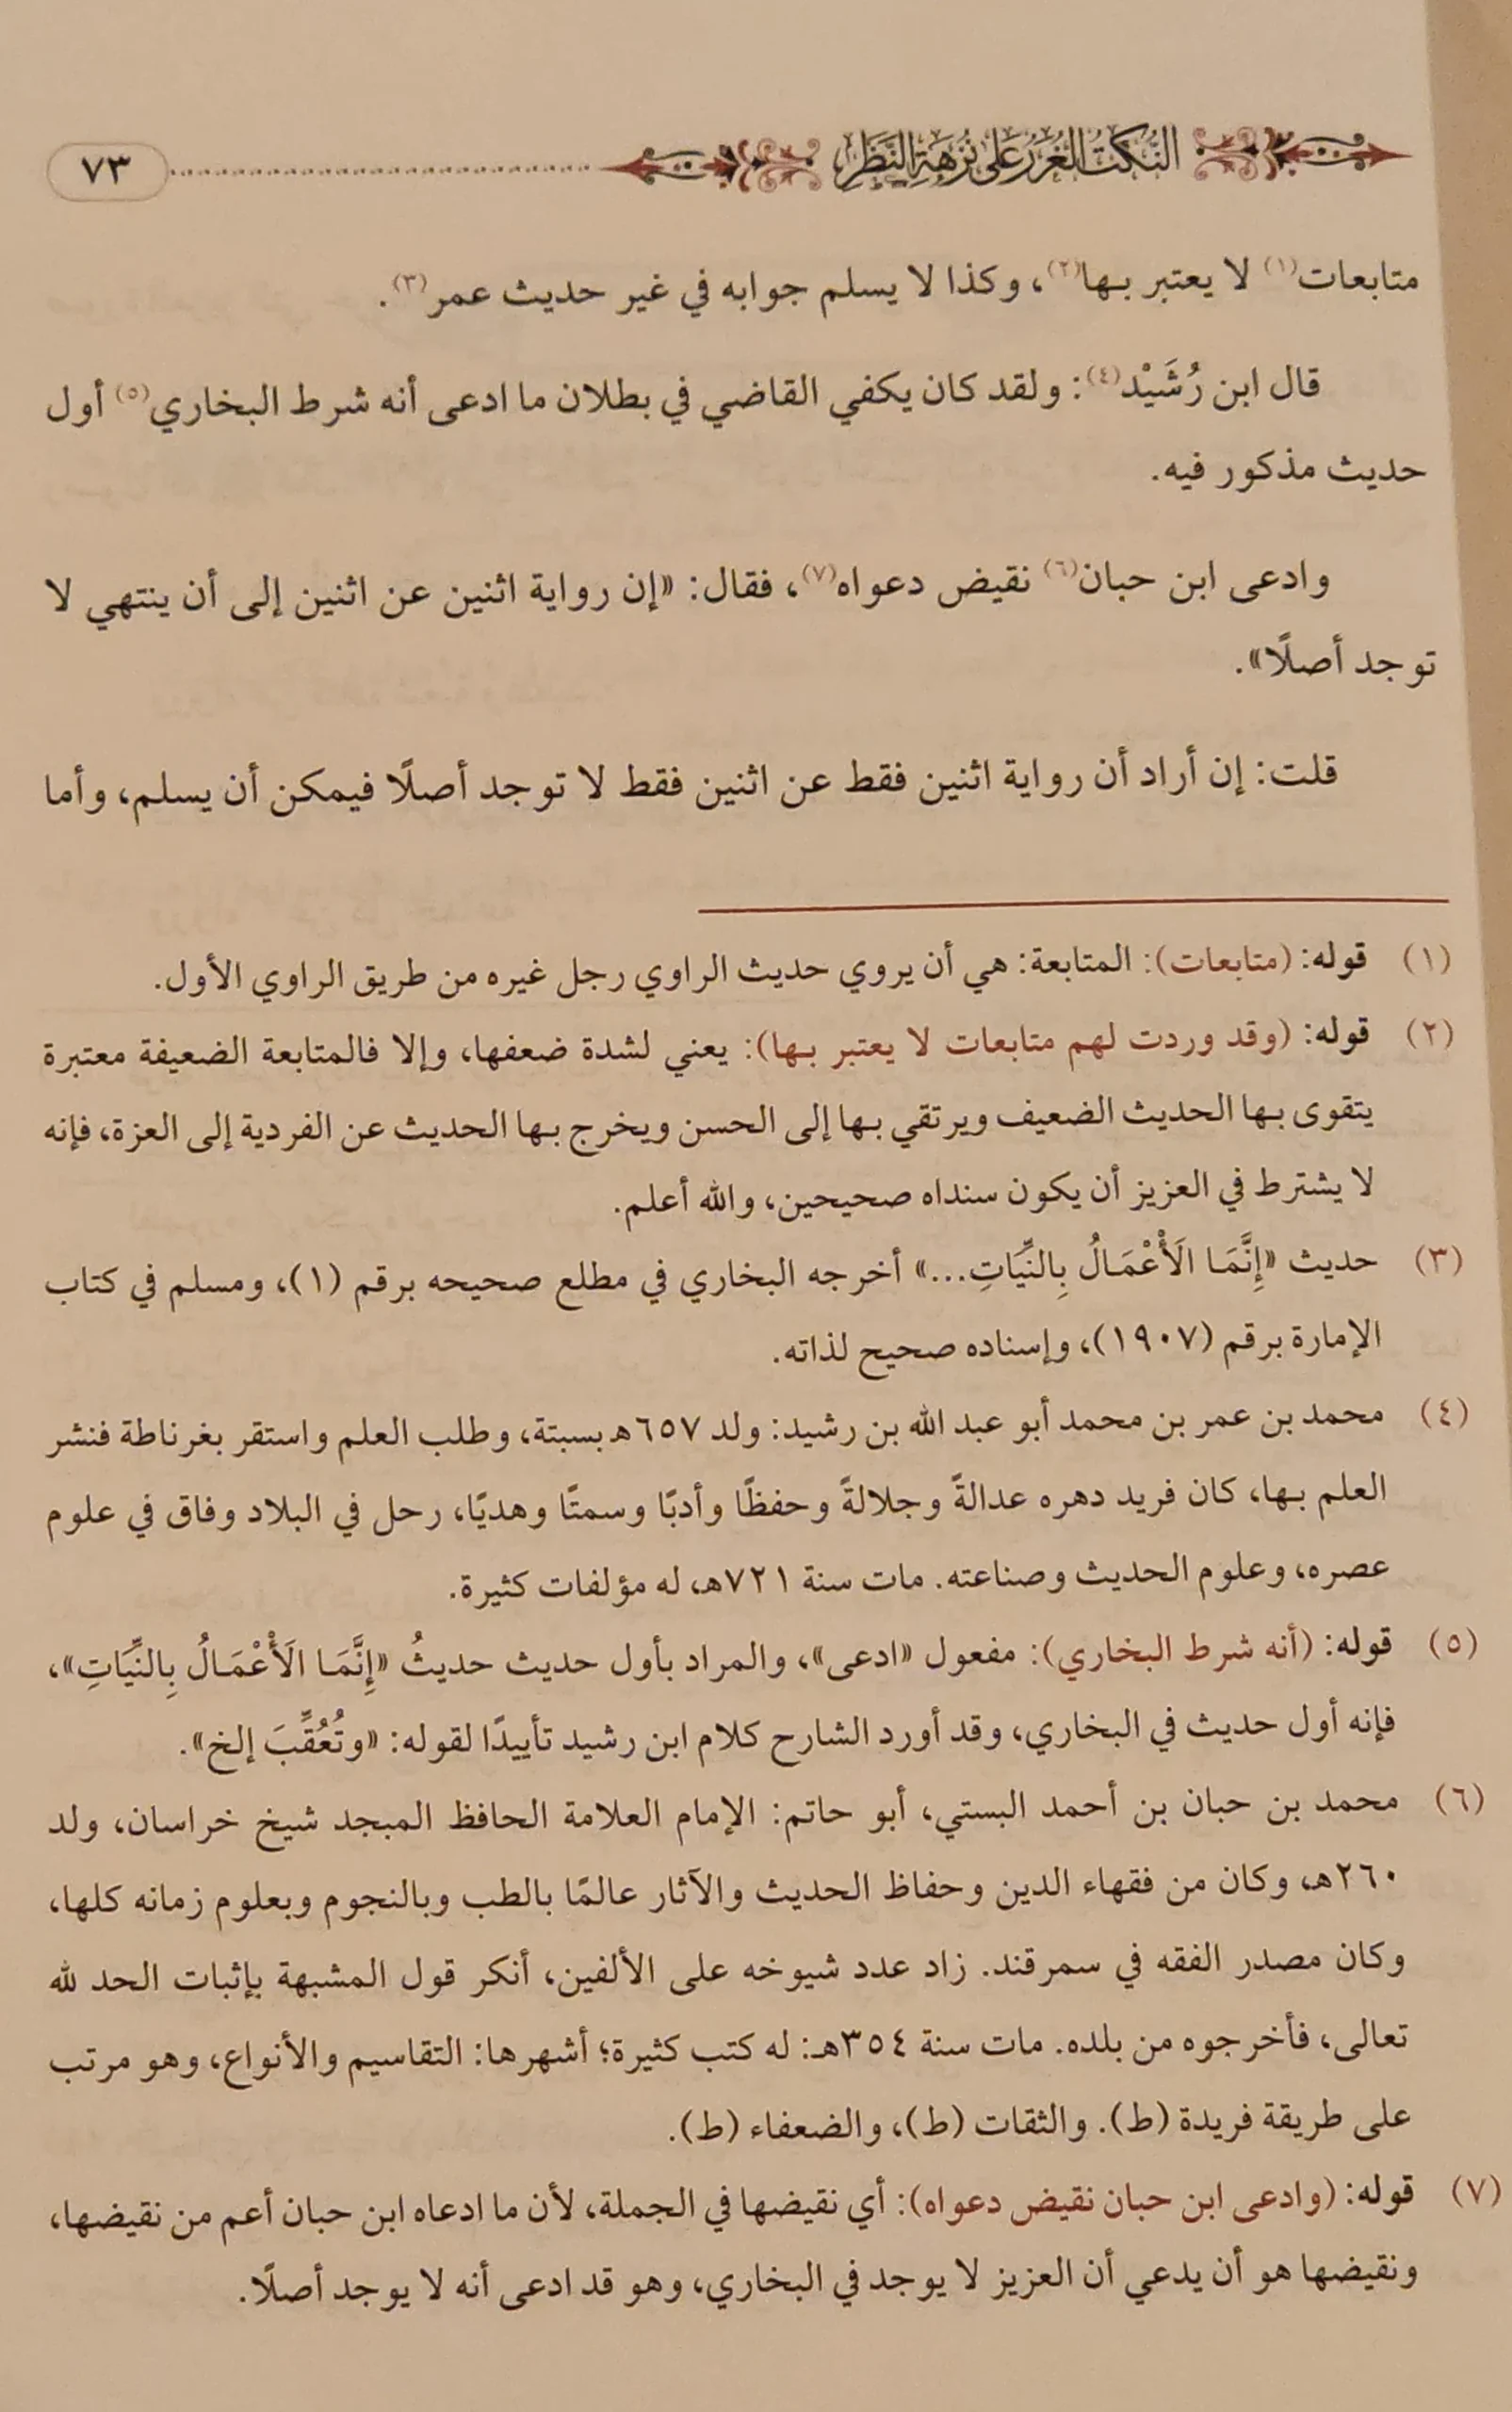 النُّكَتُ الغُرَرُ عَلَى نُزْهَةِ النَّظَرِ ٧٣
متابعات(١) لا يعتبر بها(٢)، وكذا لا يسلم جوابه في غير حديث عمر(٣).
قال ابن رُشَيْد(٤): ولقد كان يكفي القاضي في بطلان ما ادعى أنه شرط البخاري(٥) أول
حديث مذكور فيه.
وادعى ابن حبان(٦) نقيض دعواه(٧)، فقال: «إن رواية اثنين عن اثنين إلى أن ينتهي لا
توجد أصلًا».
قلت: إن أراد أن رواية اثنين فقط عن اثنين فقط لا توجد أصلًا فيمكن أن يسلم، وأما
(١) قوله: (متابعات): المتابعة: هي أن يروي حديث الراوي رجل غيره من طريق الراوي الأول.
(٢) قوله: (وقد وردت لهم متابعات لا يعتبر بها): يعني لشدة ضعفها، وإلا فالمتابعة الضعيفة معتبرة
يتقوى بها الحديث الضعيف ويرتقي بها إلى الحسن ويخرج بها الحديث عن الفردية إلى العزة، فإنه
لا يشترط في العزيز أن يكون سنداه صحيحين، والله أعلم.
(٣) حديث «إِنَّمَا الَأْعْمَالُ بِالنِّيَّاتِ...» أخرجه البخاري في مطلع صحيحه برقم (١)، ومسلم في كتاب
الإمارة برقم (١٩٠٧)، وإسناده صحيح لذاته.
(٤) محمد بن عمر بن محمد أبو عبد الله بن رشيد: ولد ٦٥٧هـ بسبتة، وطلب العلم واستقر بغرناطة فنشر
العلم بها، كان فريد دهره عدالةً وجلالةً وحفظًا وأدبًا وسمتًا وهديًا، رحل في البلاد وفاق في علوم
عصره، وعلوم الحديث وصناعته. مات سنة ٧٢١هـ، له مؤلفات كثيرة.
(٥) قوله: (أنه شرط البخاري): مفعول «ادعى»، والمراد بأول حديث حديثُ «إِنَّمَا الَأْعْمَالُ بِالنِّيَّاتِ»،
فإنه أول حديث في البخاري، وقد أورد الشارح كلام ابن رشيد تأييدًا لقوله: «وتُعُقِّبَ إلخ».
(٦) محمد بن حبان بن أحمد البستي، أبو حاتم: الإمام العلامة الحافظ المبجد شيخ خراسان، ولد
٢٦٠هـ، وكان من فقهاء الدين وحفاظ الحديث والآثار عالمًا بالطب وبالنجوم وبعلوم زمانه كلها،
وكان مصدر الفقه في سمرقند. زاد عدد شيوخه على الألفين، أنكر قول المشبهة بإثبات الحد لله
تعالى، فأخرجوه من بلده. مات سنة ٣٥٤هـ: له كتب كثيرة؛ أشهرها: التقاسيم والأنواع، وهو مرتب
على طريقة فريدة (ط). والثقات (ط)، والضعفاء (ط).
(٧) قوله: (وادعى ابن حبان نقيض دعواه): أي نقيضها في الجملة، لأن ما ادعاه ابن حبان أعم من نقيضها،
ونقيضها هو أن يدعي أن العزيز لا يوجد في البخاري، وهو قد ادعى أنه لا يوجد أصلًا.